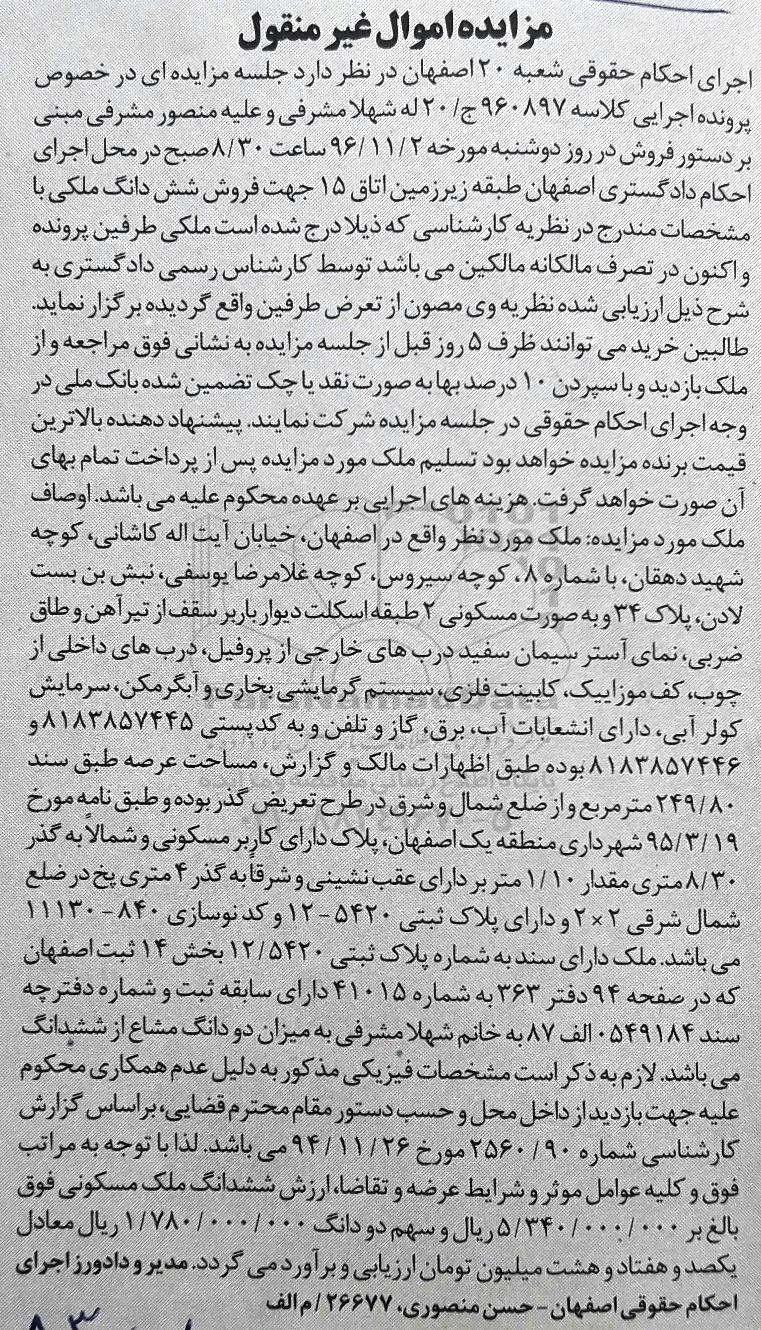 مزایده اموال غیر منقول
اجرای احکام حقوقی شعبه ۲۰ اصفهان در نظر دارد جلسه مزایده ای در خصوص
پرونده اجرایی کلاسه ۹۶۰۸۹۷ ج/۲۰ له شهلا مشرفی و علیه منصور مشرفی مبنی
بر دستور فروش در روز دوشنبه مورخه ۹۶/۱۱/۲ ساعت ۸/۳۰ صبح در محل اجرای
احکام دادگستری اصفهان طبقه زیرزمین اتاق ۱۵ جهت فروش شش دانگ ملکی با
مشخصات مندرج در نظریه کارشناسی که ذیلا درج شده است ملکی طرفین پرونده
و اکنون در تصرف مالکانه مالکین می باشد توسط کارشناس رسمی دادگستری به
شرح ذیل ارزیابی شده نظریه وی مصون از تعرض طرفین واقع گردیده برگزار نماید.
طالبین خرید می توانند ظرف ۵ روز قبل از جلسه مزایده به نشانی فوق مراجعه و از
ملک بازدید و با سپردن ۱۰ درصد بها به صورت نقد یا چک تضمین شده بانک ملی در
وجه اجرای احکام حقوقی در جلسه مزایده شرکت نمایند. پیشنهاد دهنده بالاترین
قیمت برنده مزایده خواهد بود تسلیم ملک مورد مزایده پس از پرداخت تمام بهای
آن صورت خواهد گرفت. هزینه های اجرایی بر عهده محکوم علیه می باشد. اوصاف
ملک مورد مزایده: ملک مورد نظر واقع در اصفهان، خیابان آیت اله کاشانی، کوچه
شهید دهقان، با شماره ۸، کوچه سیروس، کوچه غلامرضا یوسفی، نبش بن بست
لادن، پلاک ۳۴ و به صورت مسکونی ۲ طبقه اسکلت دیوار باربر سقف از تیرآهن و طاق
ضربی، نمای آستر سیمان سفید درب های خارجی از پروفیل، درب های داخلی از
چوب، کف موزاییک، کابینت فلزی، سیستم گرمایشی بخاری و آبگرمکن، سرمایش
کولر آبی، دارای انشعابات آب، برق، گاز و تلفن و به کدپستی ۸۱۸۳۸۵۷۴۴۵ و
۸۱۸۳۸۵۷۴۴۶ بوده طبق اظهارات مالک و گزارش، مساحت عرصه طبق سند
۲۴۹/۸۰ مترمربع و از ضلع شمال و شرق در طرح تعریض گذر بوده و طبق نامه مورخ
۹۵/۳/۱۹ شهرداری منطقه یک اصفهان، پلاک دارای کاربر مسکونی و شمالاً به گذر
۸/۳۰ متری مقدار ۱/۱۰ متر بر دارای عقب نشینی و شرقاً به گذر ۴ متری پخ در ضلع
شمال شرقی ۲×۲ و دارای پلاک ثبتی ۵۴۲۰-۱۲ و کد نوسازی ۸۴۰-۱۱۱۳۰
می باشد. ملک دارای سند به شماره پلاک ثبتی ۱۲/۵۴۲۰ بخش ۱۴ ثبت اصفهان
که در صفحه ۹۴ دفتر ۳۶۳ به شماره ۴۱۰۱۵ دارای سابقه ثبت و شماره دفترچه
سند ۰۵۴۹۱۸۴ الف ۸۷ به خانم شهلا مشرفی به میزان دو دانگ مشاع از ششدانگ
می باشد. لازم به ذکر است مشخصات فیزیکی مذکور به دلیل عدم همکاری محکوم
علیه جهت بازدید از داخل محل و حسب دستور مقام محترم قضایی، براساس گزارش
کارشناسی شماره ۲۵۶۰/۹۰ مورخ ۹۴/۱۱/۲۶ می باشد. لذا با توجه به مراتب
فوق و کلیه عوامل موثر و شرایط عرضه و تقاضا، ارزش ششدانگ ملک مسکونی فوق
بالغ بر ۵/۳۴۰/۰۰۰/۰۰۰ ریال و سهم دو دانگ ۱/۷۸۰/۰۰۰/۰۰۰ ریال معادل
یکصد و هفتاد و هشت میلیون تومان ارزیابی و برآورد می گردد. مدیر و دادورز اجرای
احکام حقوقی اصفهان - حسن منصوری، ۲۶۶۷۷/م الف
ParsNamadData